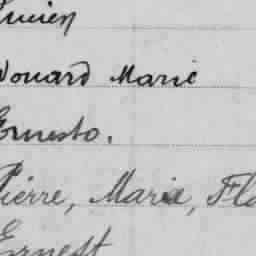 Lucien
Edouard Marie
Ernesto.
Pierre, Marie, Flo
Ernest